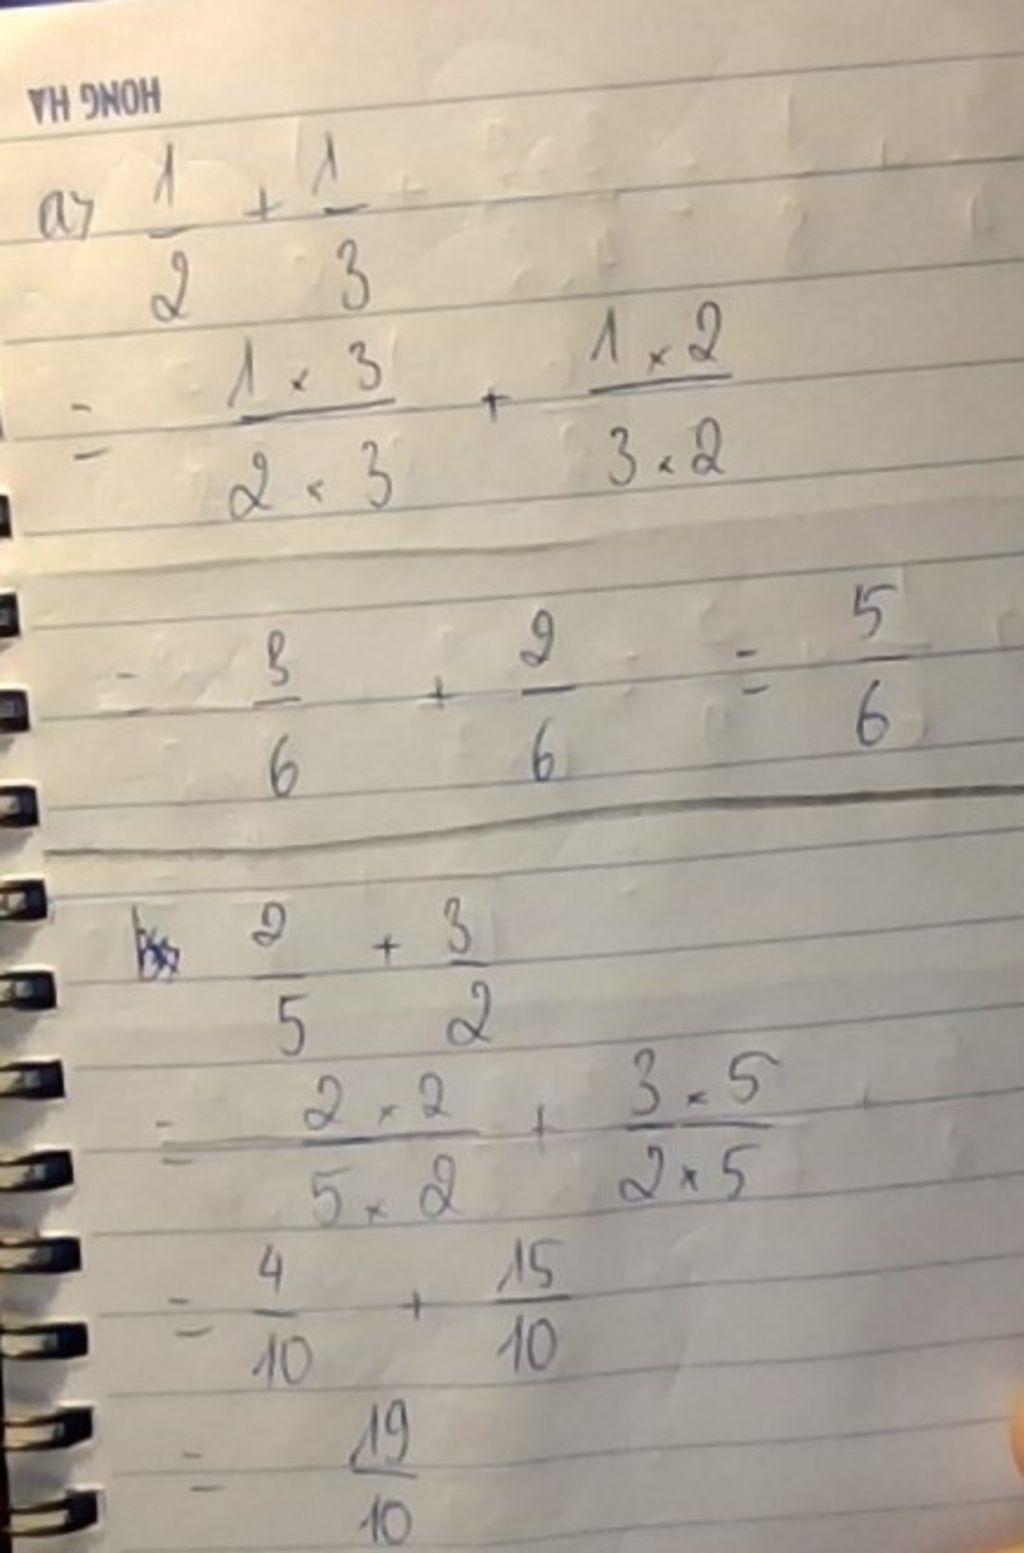 HONG HA
a) 1/2 + 1/3
= (1 × 3)/(2 × 3) + (1 × 2)/(3 × 2)
= 3/6 + 2/6 = 5/6
b) 2/5 + 3/2
= (2 × 2)/(5 × 2) + (3 × 5)/(2 × 5)
= 4/10 + 15/10
= 19/10